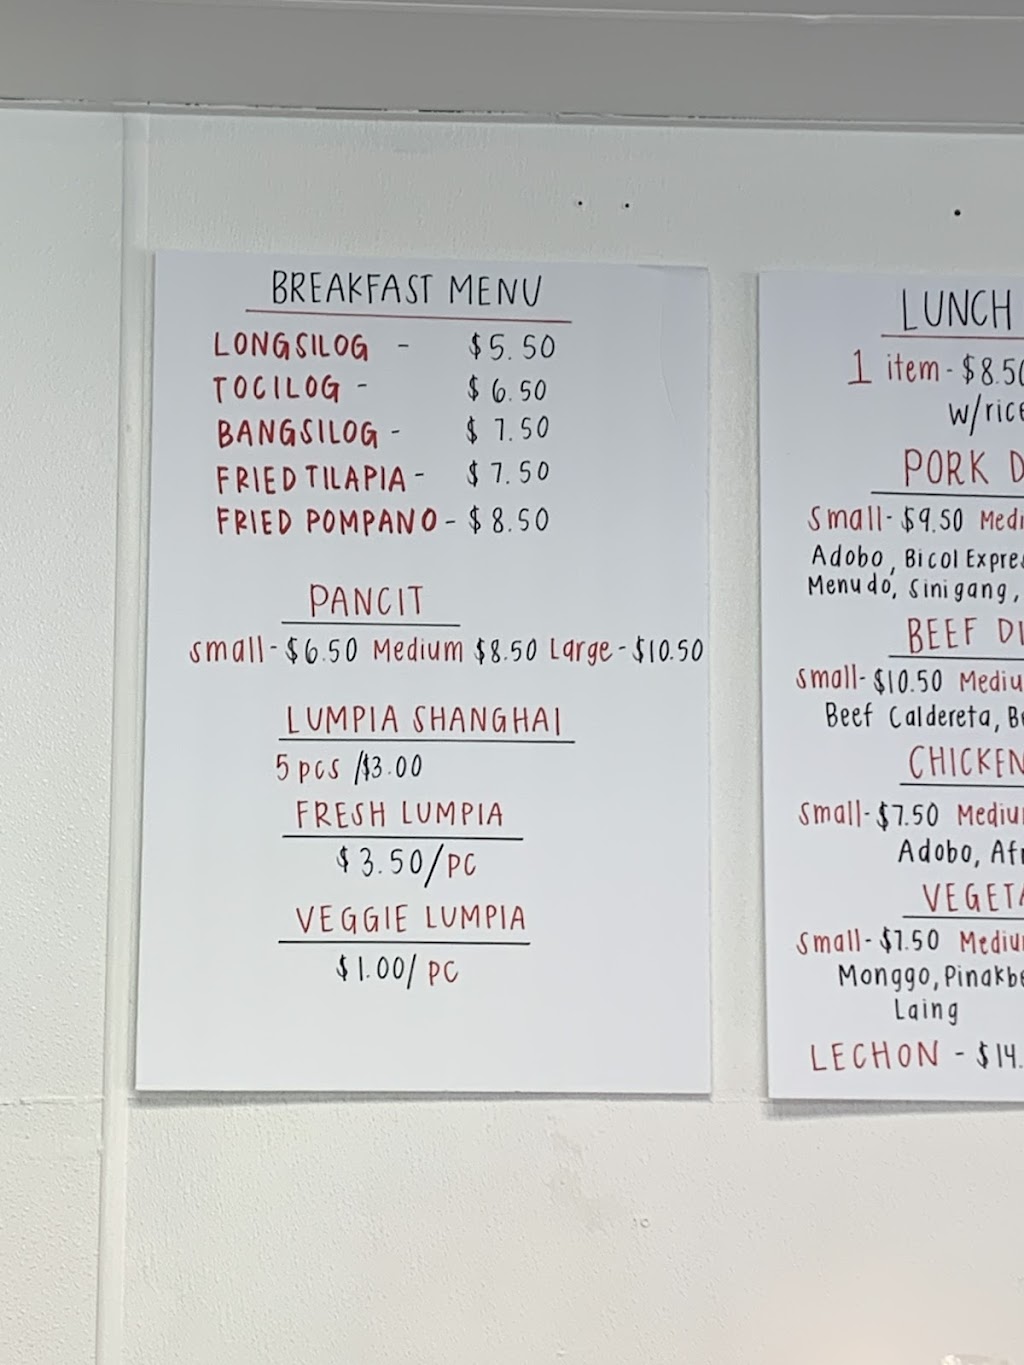 BREAKFAST MENU
LONGSILOG - $5.50
TOCILOG - $6.50
BANGSILOG - $7.50
FRIED TILAPIA - $7.50
FRIED POMPANO - $8.50
PANCIT
Small - $6.50 Medium $8.50 Large - $10.50
LUMPIA SHANGHAI
5 pcs /$3.00
FRESH LUMPIA
$3.50/PC
VEGGIE LUMPIA
$1.00/PC
LUNCH
1 item - $8.50
w/rice
PORK
Small - $9.50
Adobo, Bicol
Menudo, Sinigang,
BEEF
Small - $10.50
Beef Caldereta,
CHICKEN
Small - $7.50
Adobo,
Small - $7.50
Monggo,
Laing
LECHON - $14.